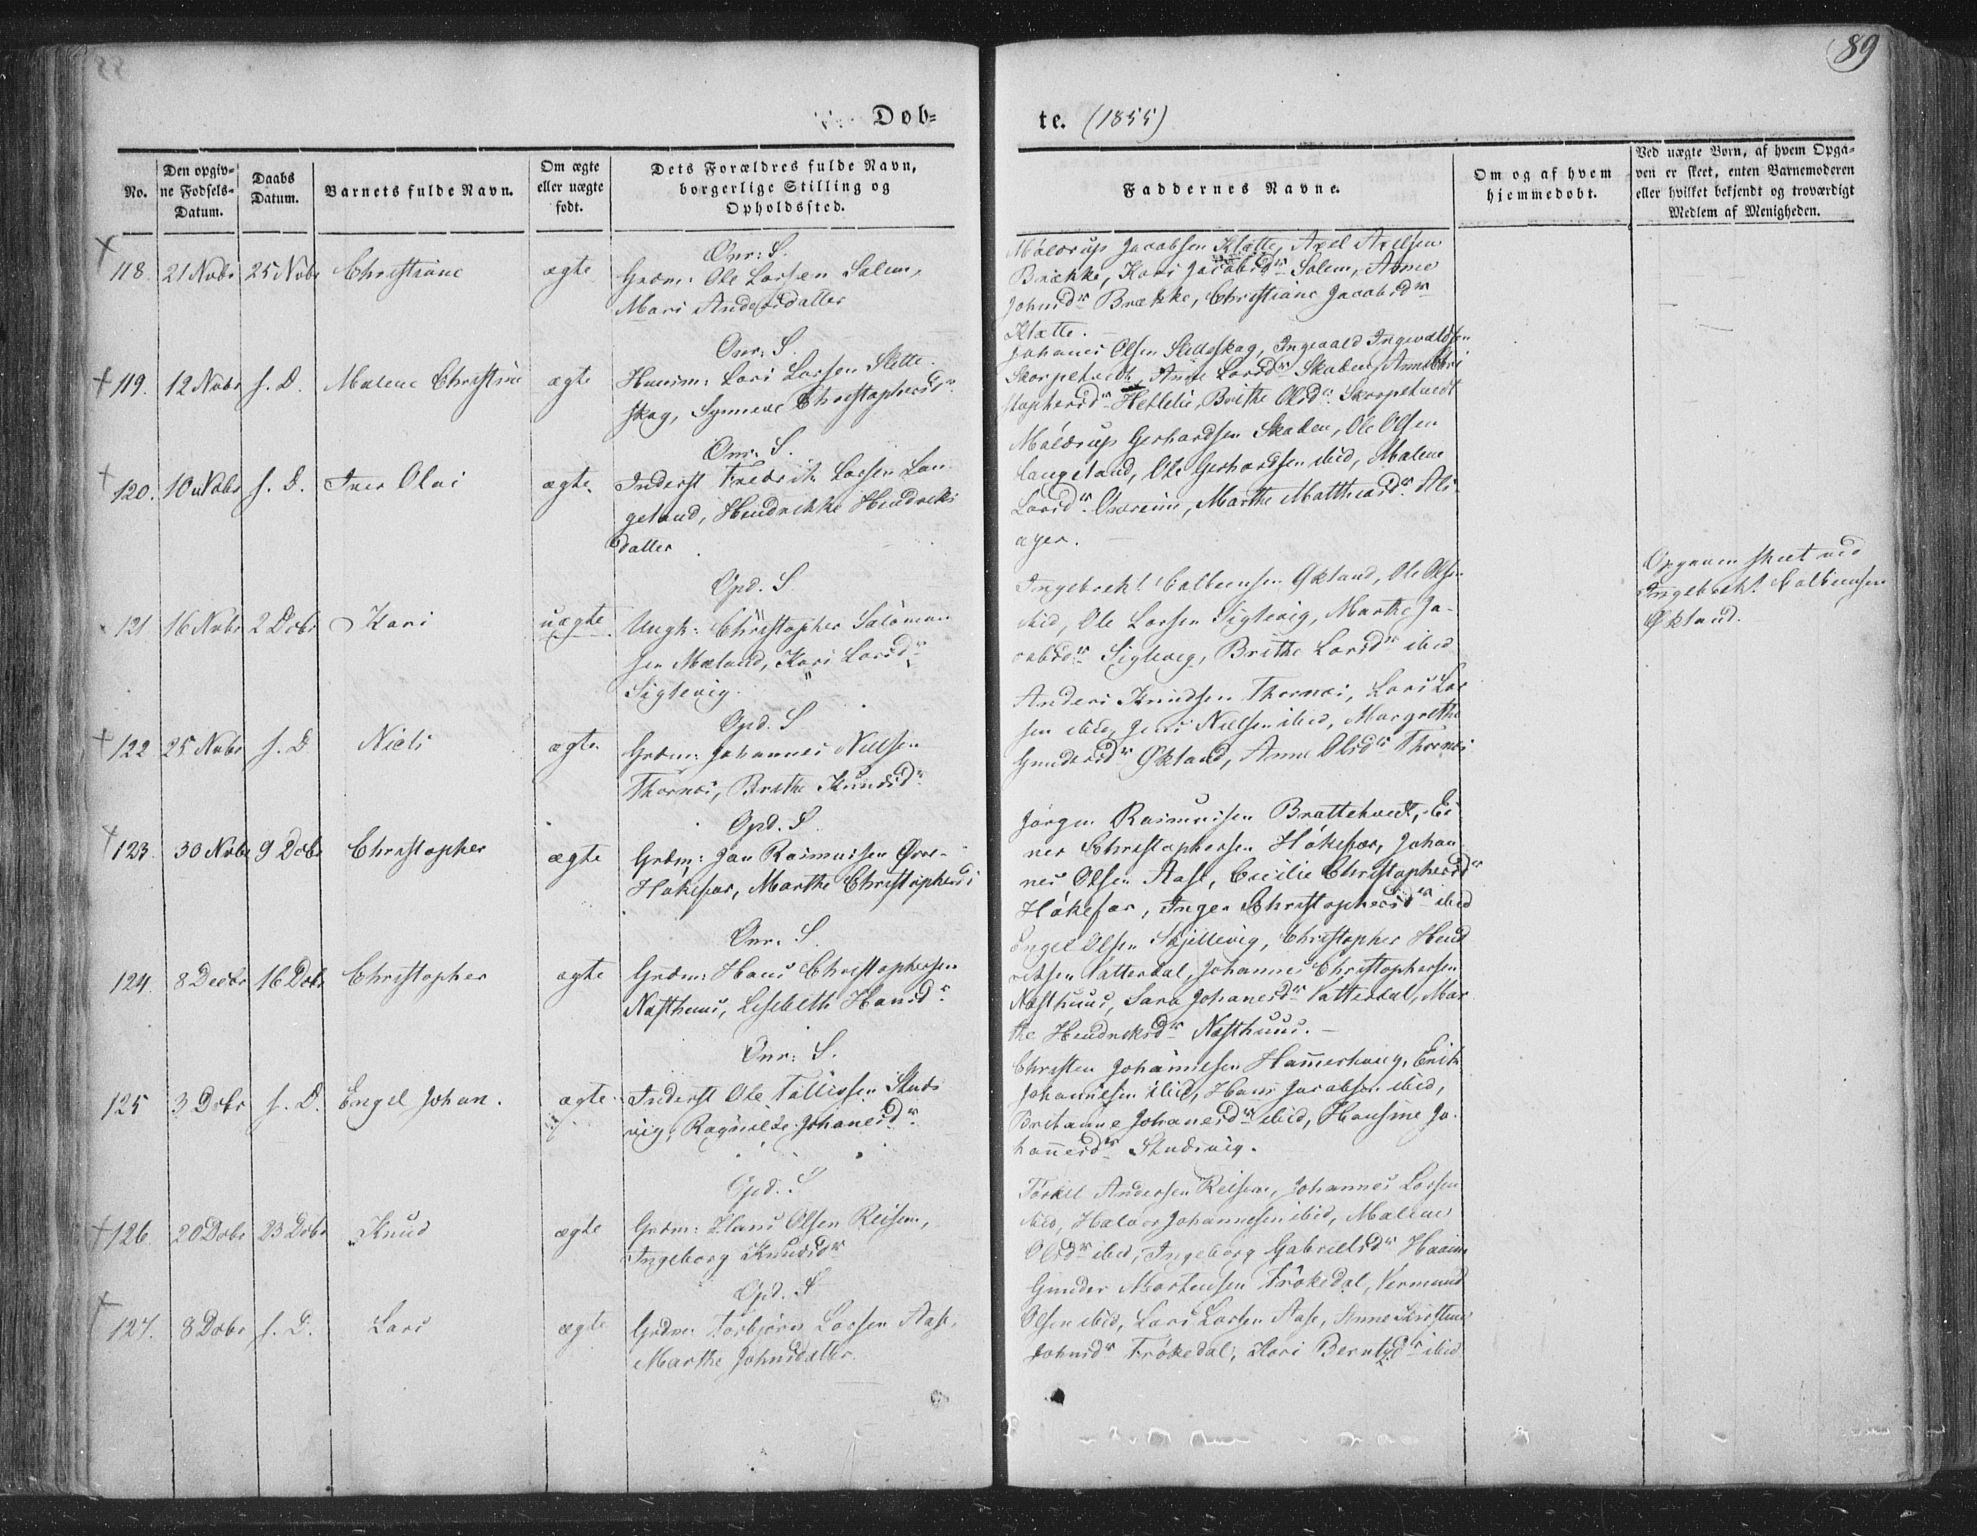 89
Døb=
te. (1855)
No.
Den opgiv-
ne Fødsels-
Datum.
Daabs
Datum.
Barnets fulde Navn.
Om ægte
eller uægte
født.
Dets Forældres fulde Navn,
borgerlige Stilling og
Opholdssted.
Faddernes Navne.
Om og af hvem
hjemmedøbt.
Ved uægte Børn, af hvem Opga-
ven er skeet, enten Barnemoderen
eller hvilket bekjendt og troværdigt
Medlem af Menigheden.
118. 21 Nobr 25 Nobr Christiane ægte
Ønr: S.
Grdm: Ole Larsen Salem,
Mari Andersdatter
Jacobsen Klætte, Axel Axelsen
Brække, Kari Jacobsdr Solem, Anne
Johnsdr Brække, Christiane Jacobsdr
Klætte.
119. 12 Nobr s. D. Malene Christine ægte
Ønr: S.
Huusm: Lars Larsen Slette
skog, Synneve Christophersdr
Johanes Olsen Sletteskog, Ingevald Ingevaldsen
Skorpetvedt, Anne Larsdr Skaden, Anne Chri
stophersdr Hetlelie, Brithe Olsdr Skorpetvedt
120. 10 Nobr s. D. Iver Olai ægte
Ønr. S.
Inderst Fredrik Larsen Lan
geland, Hendrikke Hendriks
datter
Gerhardsen Skaden, Ole Olsen
Langeland, Ole Gerhardsen ibid, Malene
Larsdr Qvereim, Marthe Matthiasdr
ager.
121 16 Nobr 2 Dcbr Kari uægte
Opd. S
Ungk: Christopher Salomon
sen Mæland, Kari Larsdr
Siglevig.
Ingebrekt Colbensen Økland, Ole Olsen
ibid, Ole Larsen Siglevig, Marthe Ja-
cobsdr Siglevig, Brithe Larsdr ibid
Opgaven skeet ved
Ingebrekt Colbensen
Økland.
122 25 Nobr s. D Niels ægte
Opd. S
Grdm: Johannes Nielsen
Thornæs, Brithe Knudsdr
Anders Knudsen Thornæs, Lars Lar
sen ibid, Jens Nielsen ibid, Margrethe
Gundersdr Økland, Anne Olsdr Thornæs
123. 30 Nobr 9 Dcbr Christopher ægte
Opd. S.
Grdm: Jan Rasmussen Øvre-
Håkefær, Marthe Christophersd
Jørgen Rasmussen Brattetvedt, Ei
ner Christophersen Håkefær, Johan
nes Olsen Aase, Cecilie Christophersdr
Håkefær, Inger Christophersdr ibid
124. 8 Decbr 16 Dcbr Christopher ægte
Ønr. S.
Grdm: Hans Christophersen
Næsthuus, Lisebeth Hansdr
Engel Olsen Skjellevig, Christopher Hend
riksen Vatterdal, Johannes Christophersen
Næsthuus, Sara Johanesdr Vatterdal, Mar
the Hendriksdr Næsthuus.
125 3 Dcbr s. D. Engel Johan. ægte
Ønr: S.
Inderst Ole Tollissen Studs
vig, Johanesdr
Christen Johannesen Hammerhaug, Erik
Johannesen ibid, Hans Jacobsen ibid,
Britanne Johanesdr ibid, Hansine Jo-
hannesdr Studsvig.
126 20 Dcbr 23 Dcbr Knud ægte
Opd. S
Grdm: Hans Olsen Reisem,
Ingeborg Knudsdr
Torkel Andersen Reisem, Johannes Larsen
ibid, Halvor Johannesen ibid, Malene
Olsdr ibid, Ingeborg Gabrielsdr Haaim
127. 8 Dcbr s. D. Lars ægte
Opd. S
Grdm: Torbjørn Larsen Aase,
Marthe Johnsdatter
Gunder Mortensen Frøkedal, Vermund
Olsen ibid, Lars Larsen Aase, Anne Kirstine
Johnsdr Frøkedal, Kari Berntsdr ibid